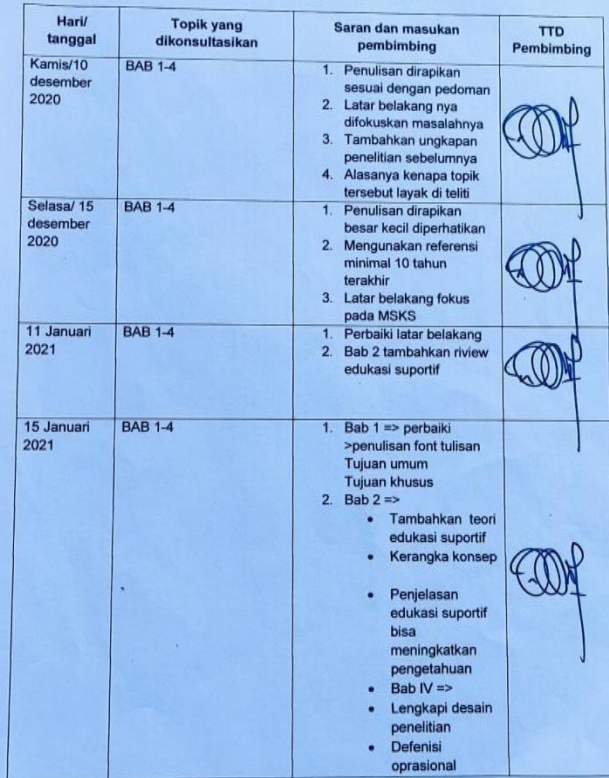 Hari/
tanggal
Topik yang
dikonsultasikan
Saran dan masukan
pembimbing
TTD
Pembimbing
Kamis/10
desember
2020
BAB 1-4
1. Penulisan dirapikan
sesuai dengan pedoman
2. Latar belakang nya
difokuskan masalahnya
3. Tambahkan ungkapan
penelitian sebelumnya
4. Alasanya kenapa topik
tersebut layak di teliti
Selasa/ 15
desember
2020
BAB 1-4
1. Penulisan dirapikan
besar kecil diperhatikan
2. Mengunakan referensi
minimal 10 tahun
terakhir
3. Latar belakang fokus
pada MSKS
11 Januari
2021
BAB 1-4
1. Perbaiki latar belakang
2. Bab 2 tambahkan riview
edukasi suportif
15 Januari
2021
BAB 1-4
1. Bab 1 => perbaiki
>penulisan font tulisan
Tujuan umum
Tujuan khusus
2. Bab 2 =>
• Tambahkan teori
edukasi suportif
• Kerangka konsep
• Penjelasan
edukasi suportif
bisa
meningkatkan
pengetahuan
• Bab IV =>
• Lengkapi desain
penelitian
• Defenisi
oprasional